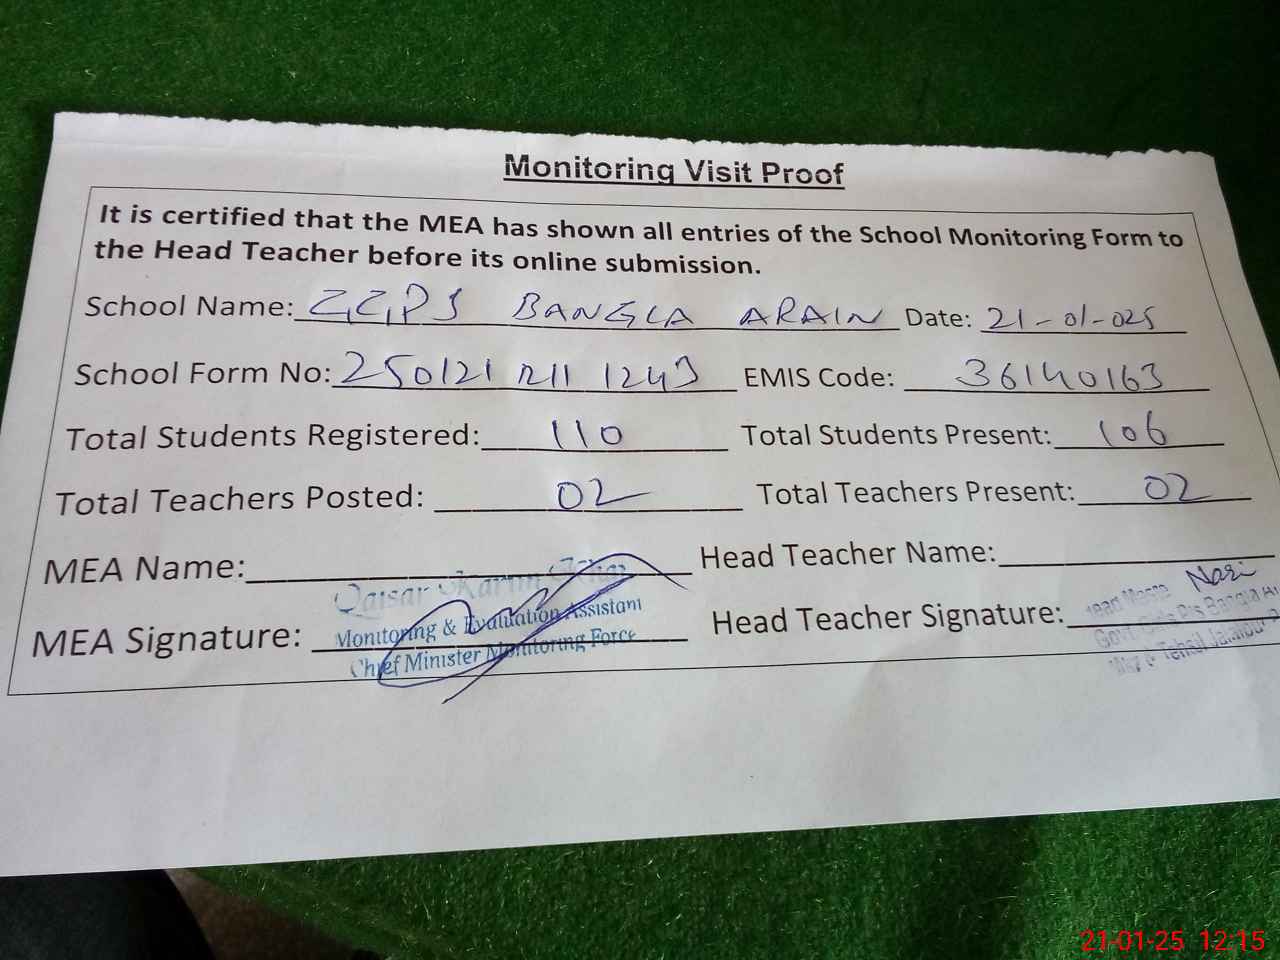 Monitoring Visit Proof
It is certified that the MEA has shown all entries of the School Monitoring Form to
the Head Teacher before its online submission.
School Name: GGPS BANGLA ARAIN Date: 21-01-025
School Form No: 250121 1211 1243 EMIS Code: 36140163
Total Students Registered: 110 Total Students Present: 106
Total Teachers Posted: 02 Total Teachers Present: 02
MEA Name: Head Teacher Name:
Qaisar Karim
MEA Signature: Monitoring & Evaluation Assistant Head Teacher Signature:
Chief Minister Monitoring Force
Govt. Girls P/s Bangla
Tehsil Jampur
21-01-25 12:15